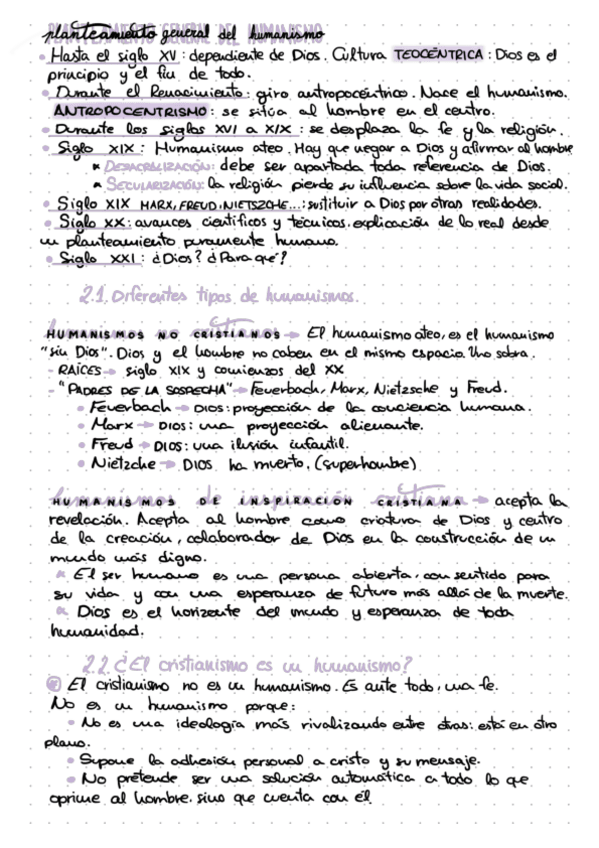 planteamiento general del humanismo
• Hasta el siglo XV: dependiente de Dios. Cultura TEOCÉNTRICA: Dios es el
principio y el fin de todo.
• Durante el Renacimiento: giro antropocéntrico. Nace el humanismo.
ANTROPOCENTRISMO: se sitúa al hombre en el centro.
• Durante los siglos XVI a XIX: se desplaza la fe y la religión.
• Siglo XIX: Humanismo ateo. Hay que negar a Dios y afirmar al hombre
* DESACRALIZACIÓN: debe ser apartada toda referencia de Dios.
* SECULARIZACIÓN: la religión pierde su influencia sobre la vida social.
• Siglo XIX MARX, FREUD, NIETSZCHE...: sustituir a Dios por otras realidades.
• Siglo XX: avances científicos y técnicos. explicación de lo real desde
un planteamiento puramente humano.
• Siglo XXI: ¿Dios? ¿Para qué?
2.1. Diferentes tipos de humanismos.
HUMANISMOS NO CRISTIANOS → El humanismo ateo, es el humanismo
"sin Dios". Dios y el hombre no caben en el mismo espacio. Uno sobra.
- RAÍCES → siglo XIX y comienzos del XX
- "PADRES DE LA SOSPECHA" → Feuerbach, Marx, Nietzsche y Freud.
• Feuerbach → DIOS: proyección de la conciencia humana.
• Marx → DIOS: una proyección alienante.
• Freud → DIOS: una ilusión infantil.
• Nietzche → DIOS ha muerto. (superhombre)
HUMANISMOS DE INSPIRACIÓN CRISTIANA → acepta la
revelación. Acepta al hombre como criatura de Dios y centro
de la creación, colaborador de Dios en la construcción de un
mundo más digno.
* El ser humano es una persona abierta, con sentido para
su vida y con una esperanza de futuro más allá de la muerte.
* Dios es el horizonte del mundo y esperanza de toda
humanidad.
2.2. ¿El cristianismo es un humanismo?
El cristianismo no es un humanismo. Es ante todo, una fe.
No es un humanismo porque:
• No es una ideología más rivalizando entre otras: está en otro
plano.
• Supone la adhesión personal a cristo y su mensaje.
• No pretende ser una solución automática a todo lo que
oprime al hombre, sino que cuenta con él